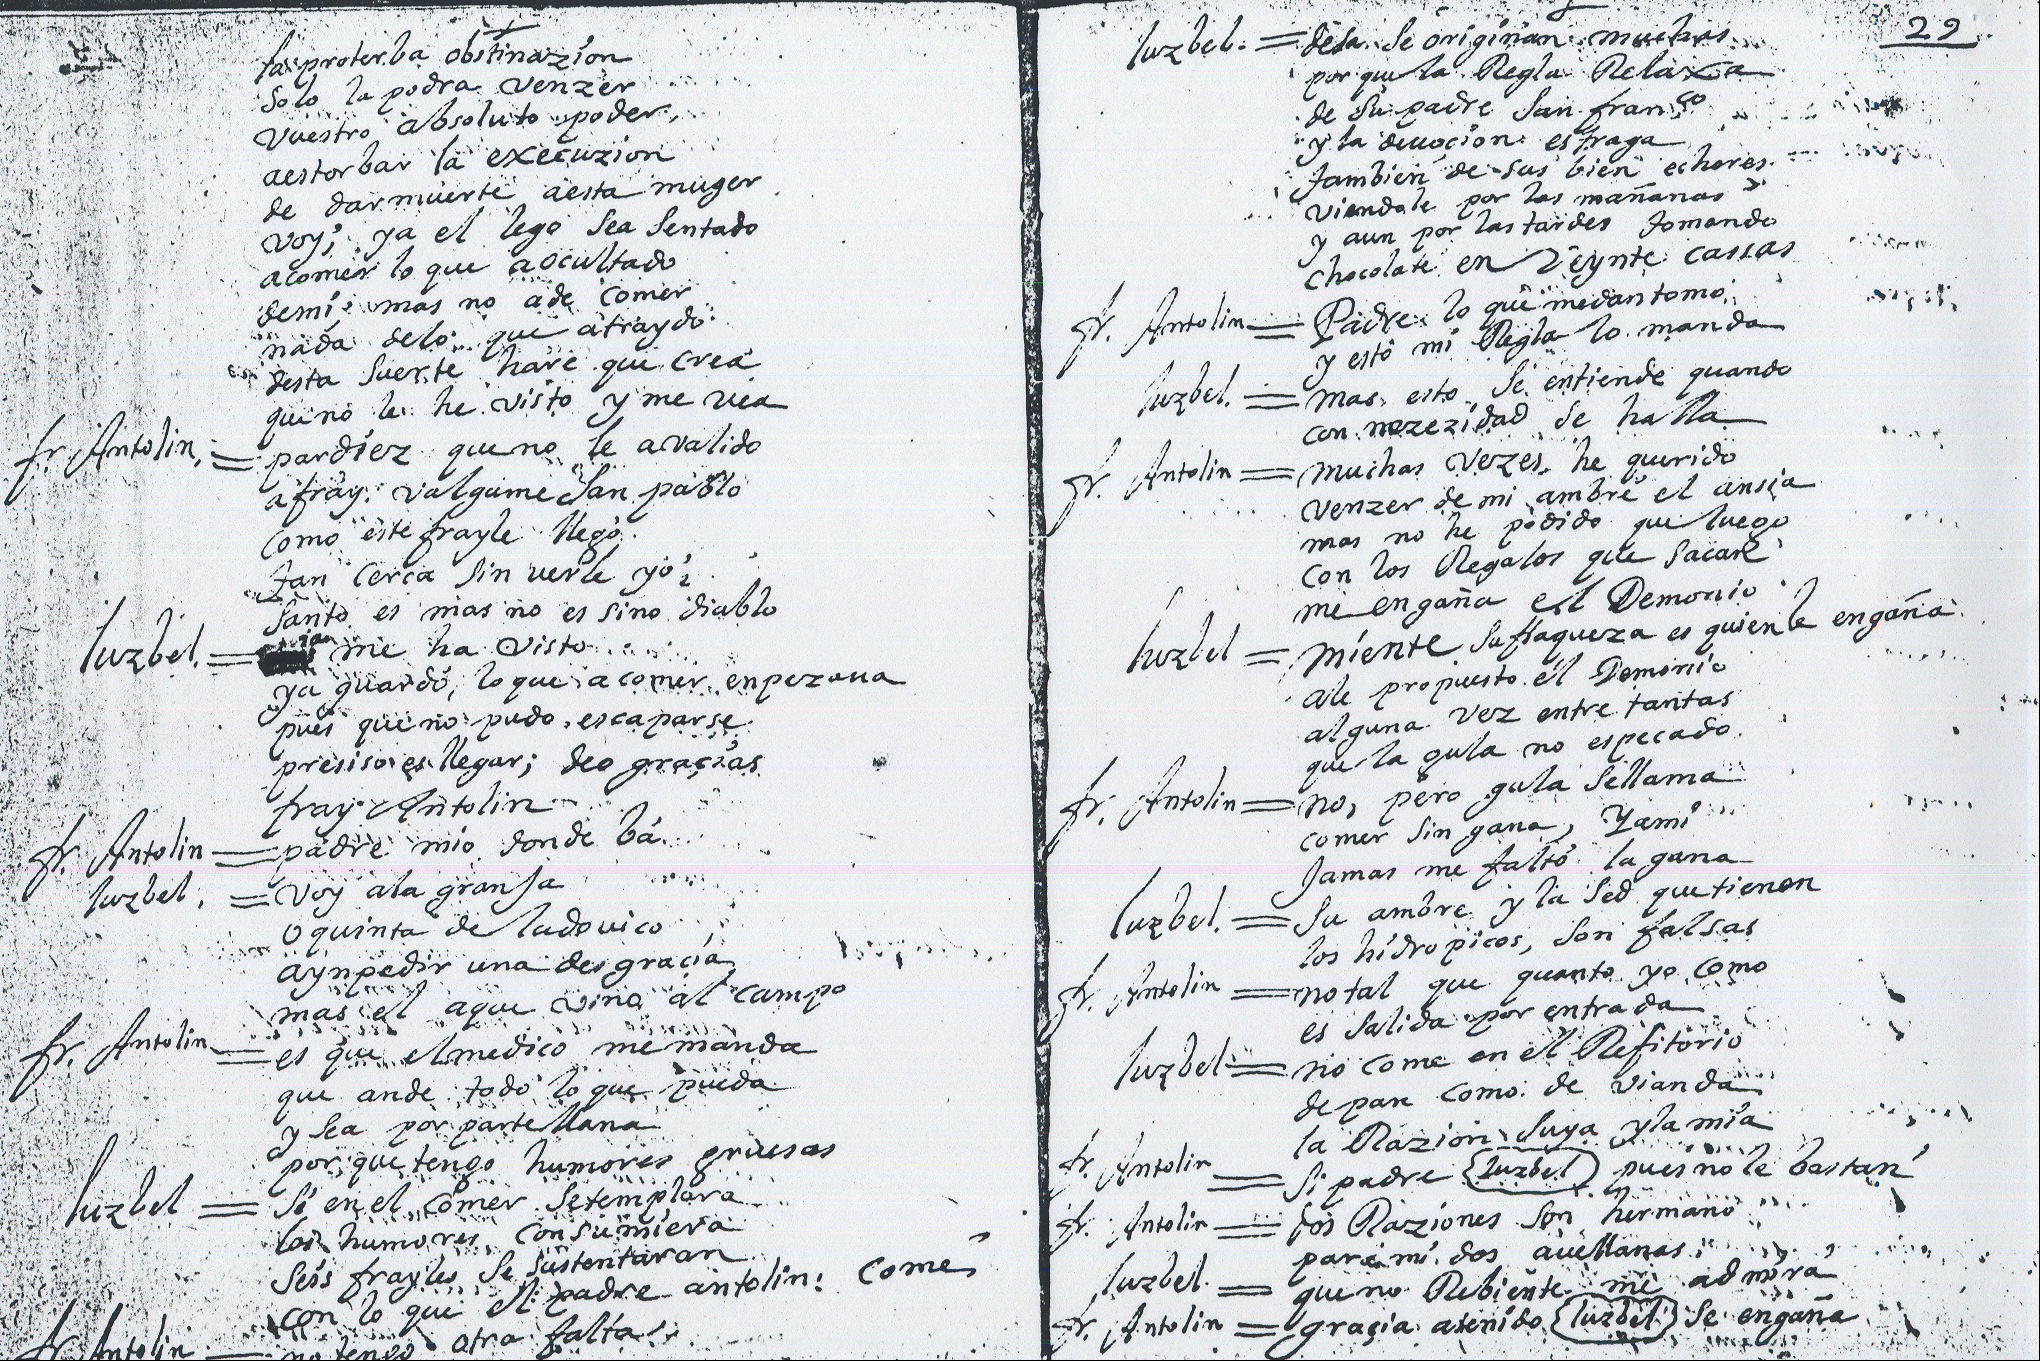 la proterba obstinazion
solo la podra venzer
vuestro absoluto poder,
aestorbar la execuzion
de darmuerte aesta muger
voy, ya el lego sea sentado
acomer lo que aocultado
demi mas no ade comer
nada delo que atraydo
desta suerte hare que crea
queno le he visto y me vea
fr. Antolin, = pardiez queno le avalido
afray. valgame San pablo
como este frayle llego
tan cerca sin verle yo,
santo es mas no es sino diablo
luzbel. = me ha visto
ya guardo, lo que acomer enpezava
pues queno pudo escaparse
presiso es llegar; deo gracias
fray Antolin
fr. Antolin = padre mio donde ba
luzbel. = voy ala granja
o quinta de ludovico
aynpedir una desgracia
mas el aque vino al campo
fr. Antolin = es que elmedico memanda
que ande todo lo que pueda
y sea por partellana
por que tengo humores gruesas
luzbel = Si en el comer setemplara
los humores consumiera
seis frayles se sustentaran
con lo que el padre antolin: come
fr Antolin = no tengo otra falta
29
luzbel. = desa se originan muchas
por que la Regla Relaxa
de su padre San fran.co
y la devocion esfraga
tambien de sus bien echores
viendole por las mañanas
y aun por lastardes tomando
chocolate en veynte cassas
fr. Antolin = Padre lo que medantomo
y esto mi Regla lo manda
luzbel. = mas esto se entiende quando
con nezezidad se halla
fr. Antolin = muchas vezes he querido
venzer de mi ambre el ansia
mas no he podido que luego
con los Regalos que sacare
me engaña el Demonio
luzbel = miente suflaqueza es quien le engaña
ale propuesto el Demonio
alguna vez entre tantas
que la gula no espeçado
fr. Antolin = no, pero gula sellama
comer sin gana, Yami
Jamas me faltó la gana
luzbel. = Su ambre y la sed quetienen
los hidropicos, son falsas
fr. Antolin = notal que quanto yo como
es salida por entrada
luzbel = no come en el Refitorio
de pan como de vianda
la Razion suya ylamia
fr. Antolin = si padre (luzbel) pues no le bastan
fr. Antolin = dos Raziones son hermano
para mi dos avellanas
luzbel. = que no Rebiente me admira
fr. Antolin = gracia atenido (luzbel) se engaña